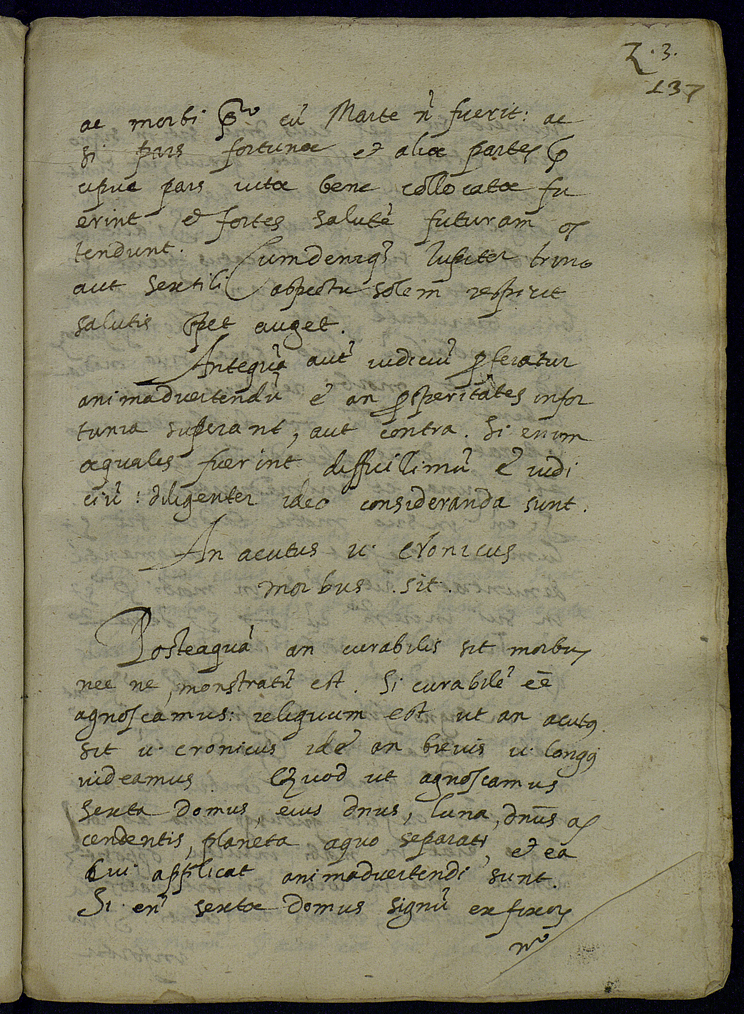 Z. 3.
137
ac morbi eũ Marte ñ fuerit: ac
si pars fortunæ et aliæ partes
cipue pars vitæ bene collocatæ fu
erint et fortes salutẽ futuram os
tendunt. Cumdeniqꝫ Iupiter trino
aut sextili aspectu solem respicit
salutis spet auget.
Antequã autẽ iudiciũ ꝓferatur
animadvertendũ ẽ an ꝓsperitates infor
tunia superant, aut contra. Si enim
æquales fuerint difficilimũ ẽ iudi
ciũ: diligenter ideo consideranda sunt.
An acutus u. cronicus
morbus sit.
Posteaquã an curabilis sit morbus
nec ne, monstratũ est. Si curabilẽ eẽ
agnoscamus: reliquum est ut an acutꝰ
sit u. cronicus idẽ an brevis u. longꝰ
videamus. Quod ut agnoscamus
sexta domus, eius dñus, luna, dñus as
cendentis, planeta aquo separat, et ea
cui applicat animadvertendi sunt.
Si enĩ sextæ domus signũ ex fixoꝝ
nº